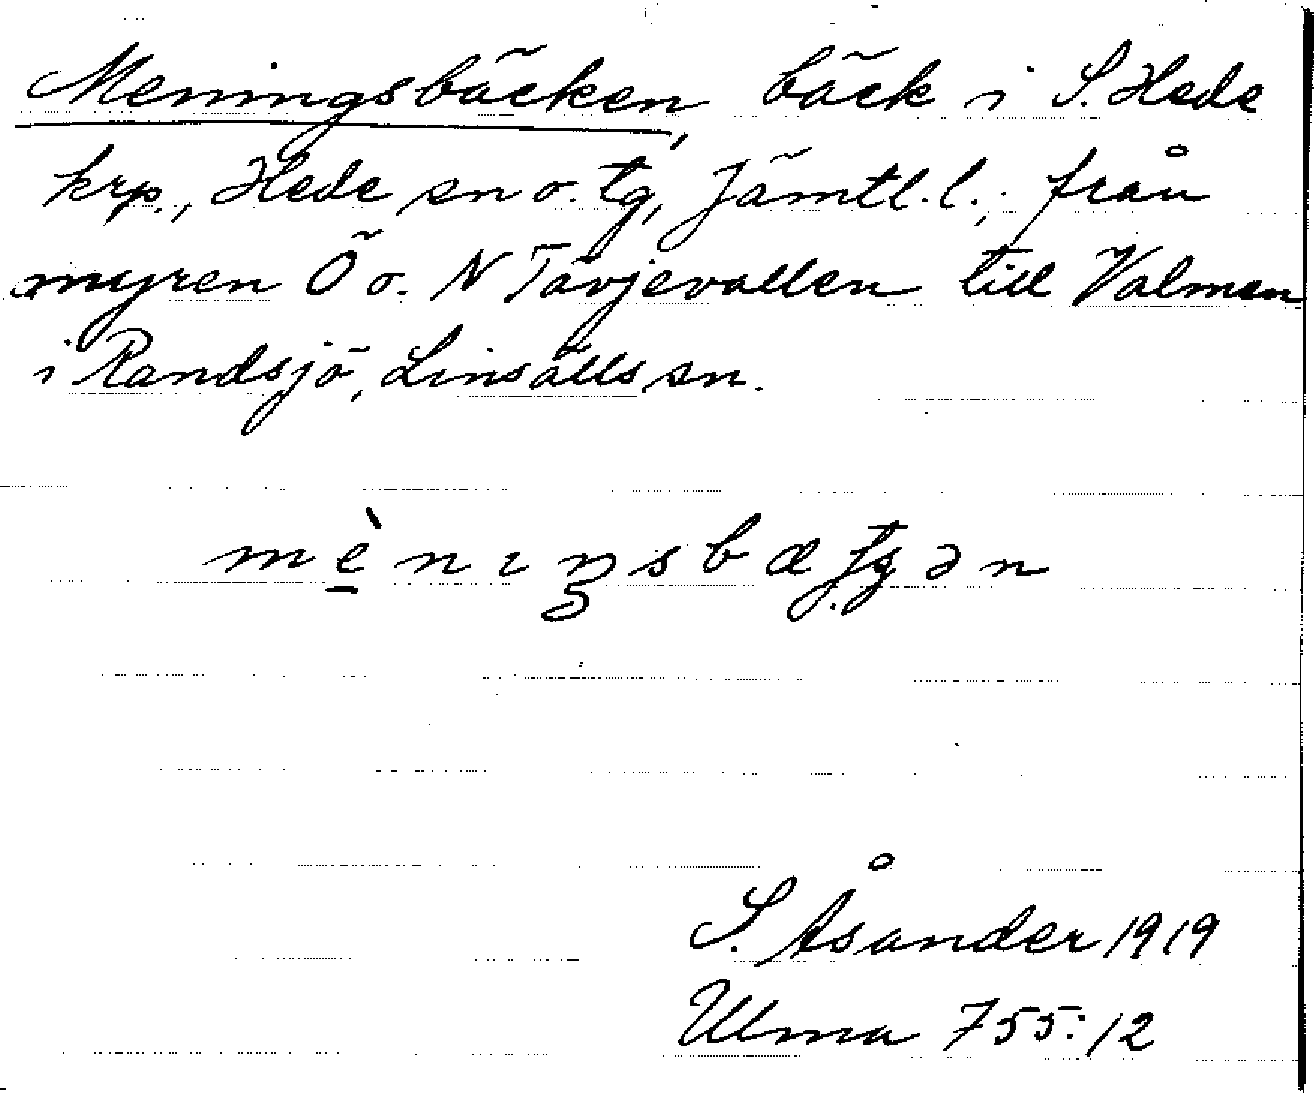 Meningsbäcken, bäck i S. Hede
krp., Hede sn o. tg, Jämtl. l.; från
myren Ö o. N Tävjevallen till Valmen
i Randsjö, Linsälls sn.
S. Åsander 1919
Ulma 755:12